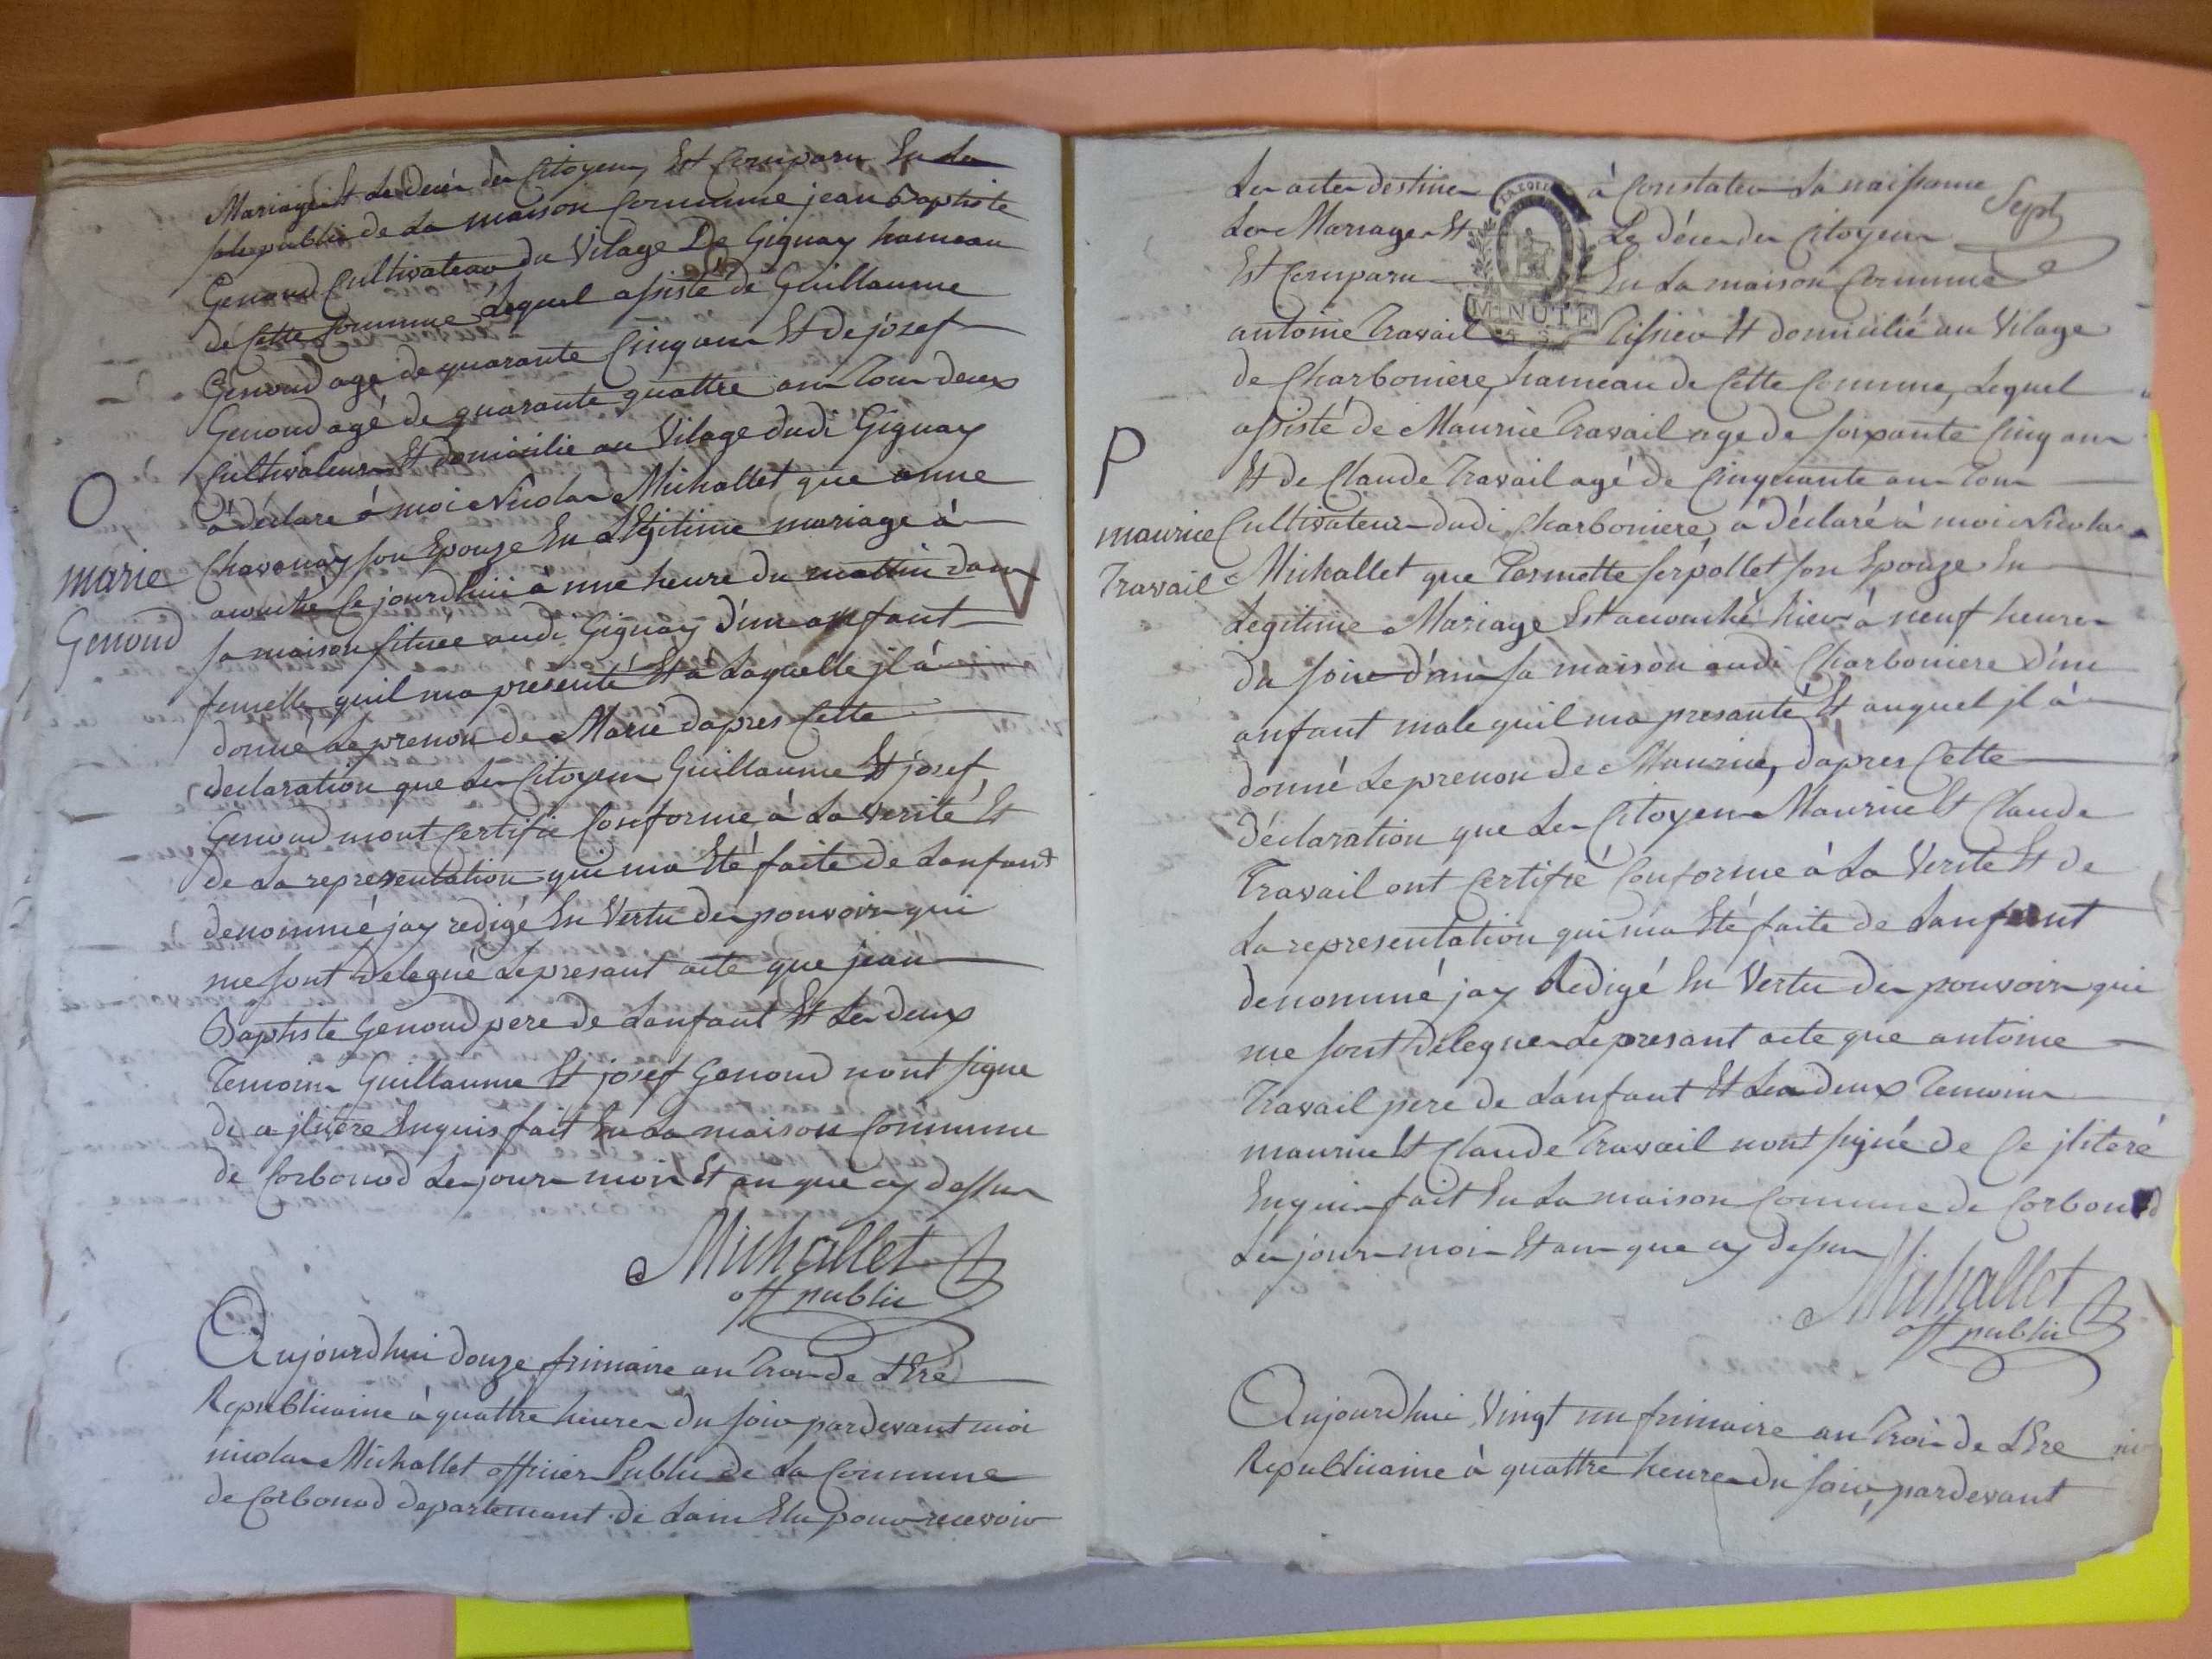 Mariage Et Le Décés des Citoyens Est Comparu En La
sale public de La maison Commune jean Baptiste
Genoud Cultivateur du Vilage De Gignay hameau
de Cette Commune Lequel assisté de Guillaume
Genoud agé de quarante Cinq ans Et de josef
Genoud agé de quarante quattre ans Tous deux
Cultivateurs Et domicilie au Vilage dudi Gignay
à déclaré à moi Nicolas Michallet que anne
Chavanay son Epouze En Légitime mariage à
acouché Ce jourdhui à une heure du mattin dans
sa maison située audi Gignay d'un anfant
femelle quil ma presenté Et à Laquelle jl à
donné Le prenon de Marie dapres Cette
declaration que Les Citoyens Guillaume Et josef
Genoud mont Certifié Conforme à La verité Et
de La representation qui ma Eté faite de Lanfant
denommé jay redigé En Vertu des pouvoirs qui
me sont delegué Le presant acte que jean
Baptiste Genoud pere de Lanfant Et Les deux
Temoins Guillaume Et josef Genoud nont signe
de a jlitére Enquis fait En La maison Commune
de Corbonod Les jours mois Et an que cy dessus
Michallet
off public
O
marie
Genoud
Aujourdhui douze frimaire an Trois de LEre
Republicaine à quattre heures du soir pardevant moi
nicolas Michallet officier Public de La Commune
de Corbonod departement de Lain Elu pour recevoir
Les actes destines à Constater La naissance
Les Mariages Et Le décés des Citoyens
Sept
Est Comparu En La maison Commune
MINUTE
antoine Travail Tissier Et domicilié au Vilage
de Charboniere, hameau de Cette Commune, Lequel
assisté de Maurice Travail age de soixante Cinq ans
Et de Claude Travail agé de Cinquante ans Tous
Cultivateurs dudi Charboniere, à déclaré à moi Nicolas
Michallet que Pernette serpollet son Epouze En
Legitime Mariage Est acouché hier à neuf heures
du soir dans sa maison audi Charboniere d'un
anfant male quil ma presanté Et auquel jl à
donné Le prenon de Maurice, dapres Cette
déclaration que Les Citoyens Maurice Et Claude
Travail ont Certifié Conforme à La Verité Et de
La representation qui ma Eté faite de Lanfant
denommé jay Redigé En Vertu des pouvoirs qui
me sont délegues Le presant acte que antoine
Travail pere de Lanfant Et Les deux Temoins
maurice Et Claude Travail nont signé de Ce jliteré
Enquis fait En La maison Commune de Corbonod
Les jours mois Et an que cy dessus
Michallet
off public
P
maurice
Travail
Aujourdhui Vingt un frimaire an Trois de LEre
Republicaine à quattre heures du soir, pardevant